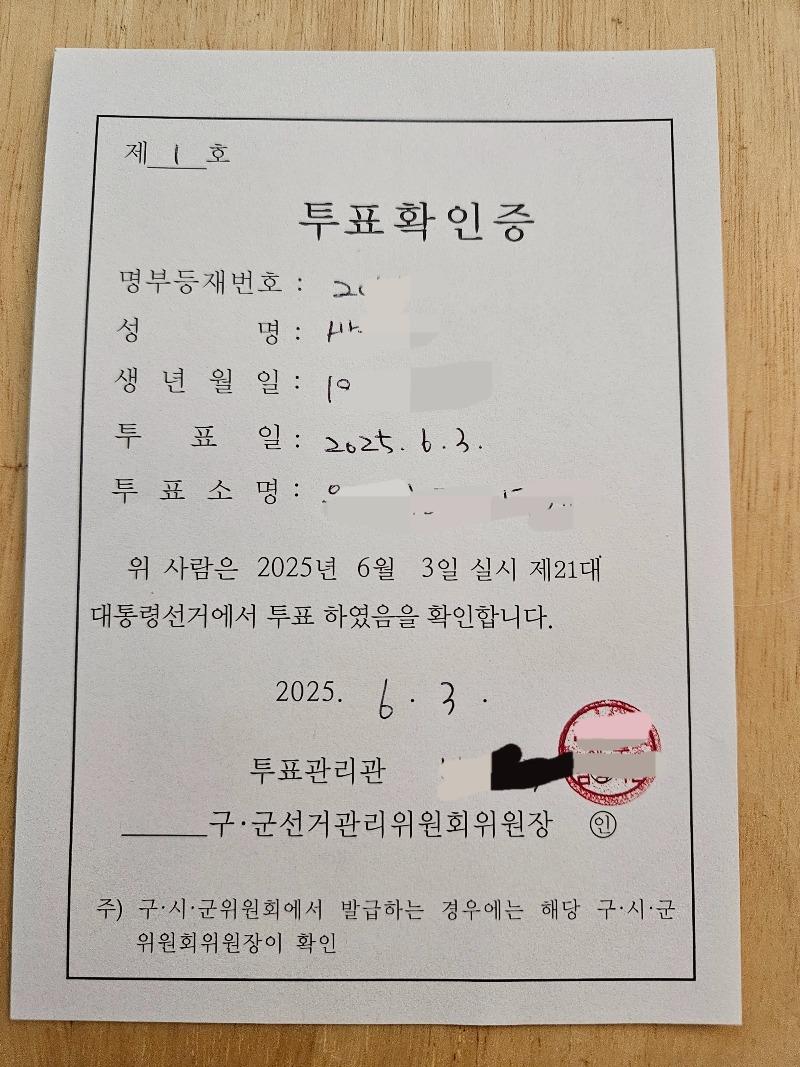 제 1 호
투표확인증
명부등재번호 :
성 명 :
생 년 월 일 : 10
투 표 일 : 2025. 6. 3.
투 표 소 명 :
위 사람은 2025년 6월 3일 실시 제21대
대통령선거에서 투표 하였음을 확인합니다.
2025. 6. 3.
투표관리관
구·군선거관리위원회위원장 ㊞
주) 구·시·군위원회에서 발급하는 경우에는 해당 구·시·군
위원회위원장이 확인